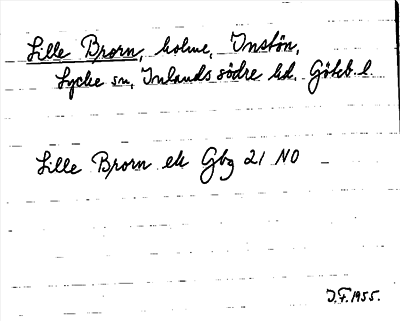 Lille Brorn, holme, Instön,
Lycke sn, Inlands södre hd, Göteb. l.
Lille Brorn ek Gbg 21 NO
J.F. 1955.